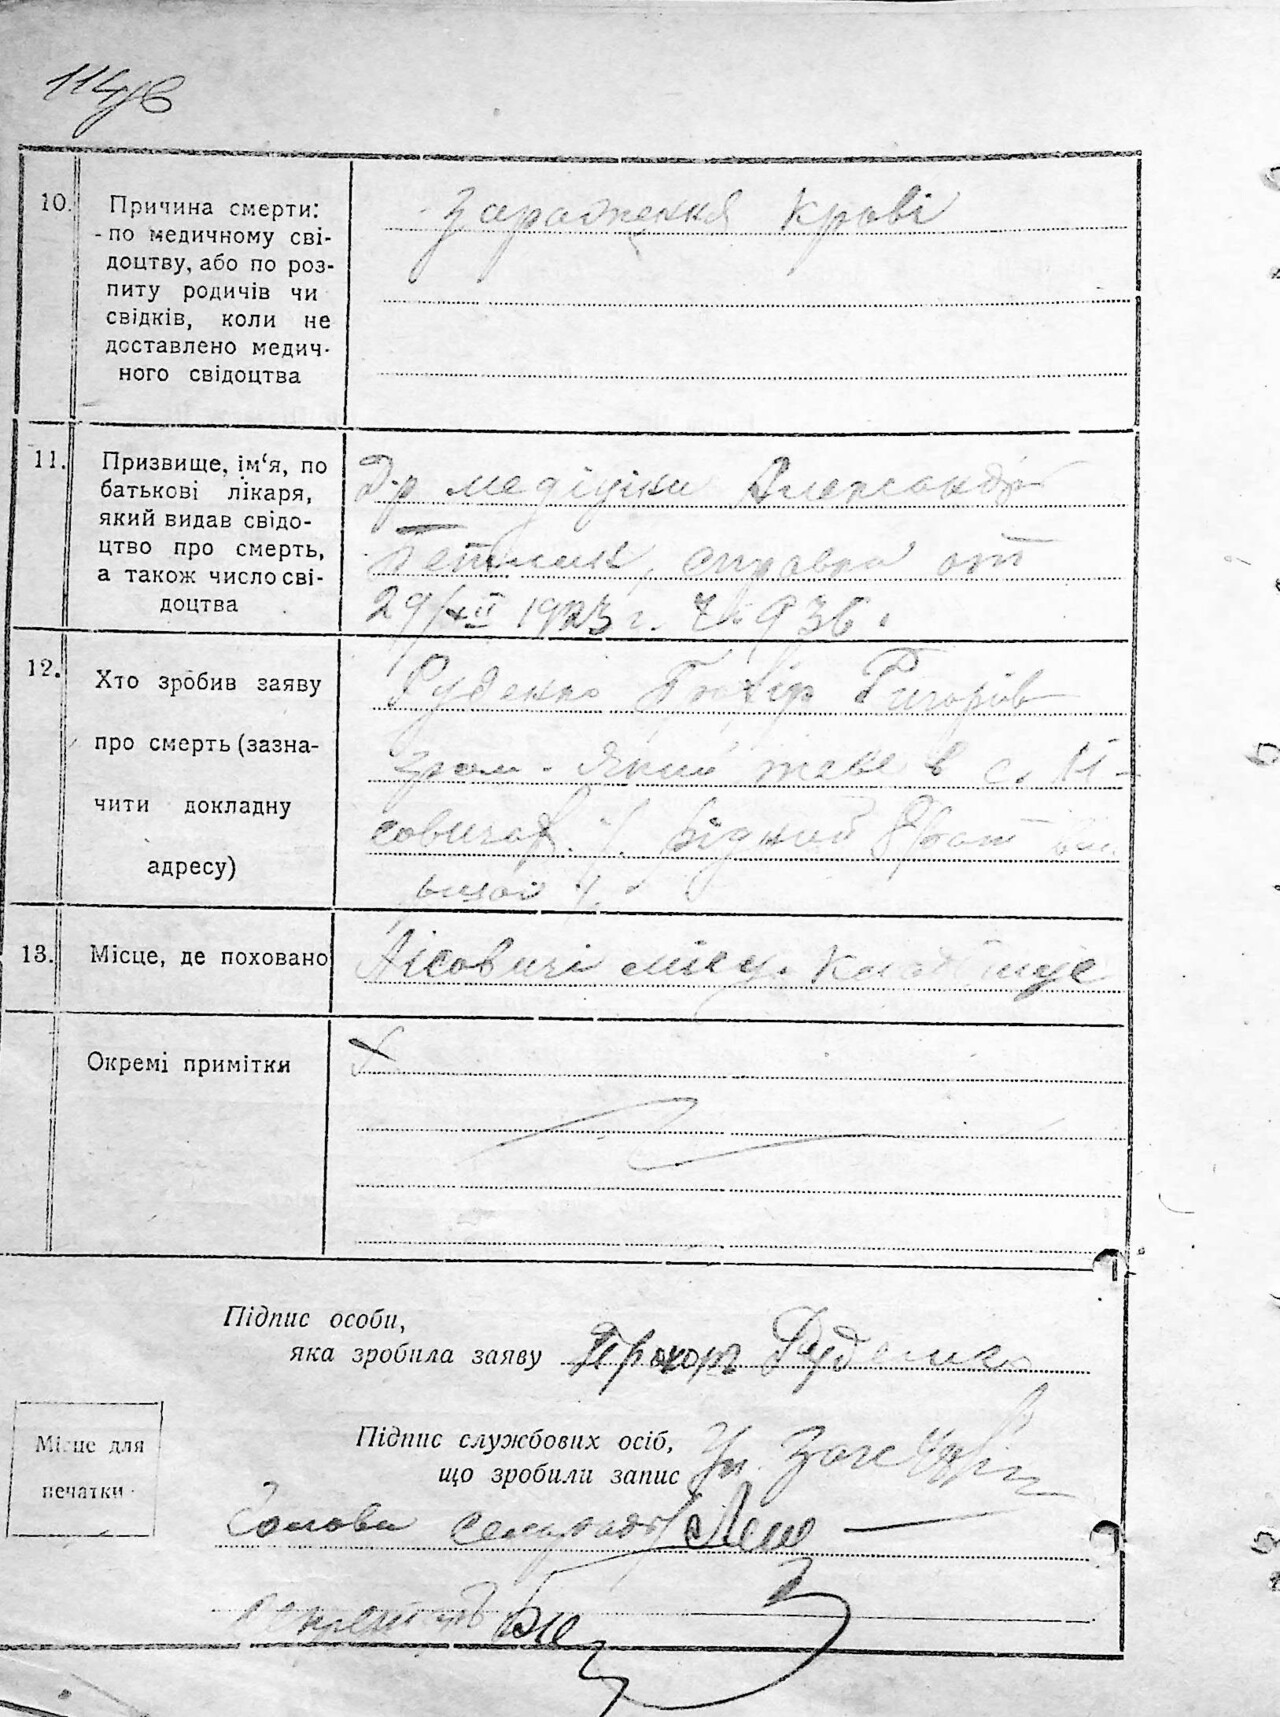 10. Причина смерти:
- по медичному сві-
доцтву, або по роз-
питу родичів чи
свідків, коли не
доставлено медич-
ного свідоцтва
Зараження крові
11. Призвище, ім'я, по
батькові лікаря,
який видав свідо-
цтво про смерть,
а також число сві-
доцтва
Д-р медіціни Александр
справка от
29/XII 1923 г. № 936.
12. Хто зробив заяву
про смерть (зазна-
чити докладну
адресу)
Руденко Прохір Григорів
який живе в с. Лі-
совичах рідний брат
13. Місце, де поховано
Лісовичі кладбище
Окремі примітки
Підпис особи,
яка зробила заяву Прохоръ Руденко
Підпис службових осіб,
що зробили запис
Місце для
печатки
Голова сельради
Секретарь